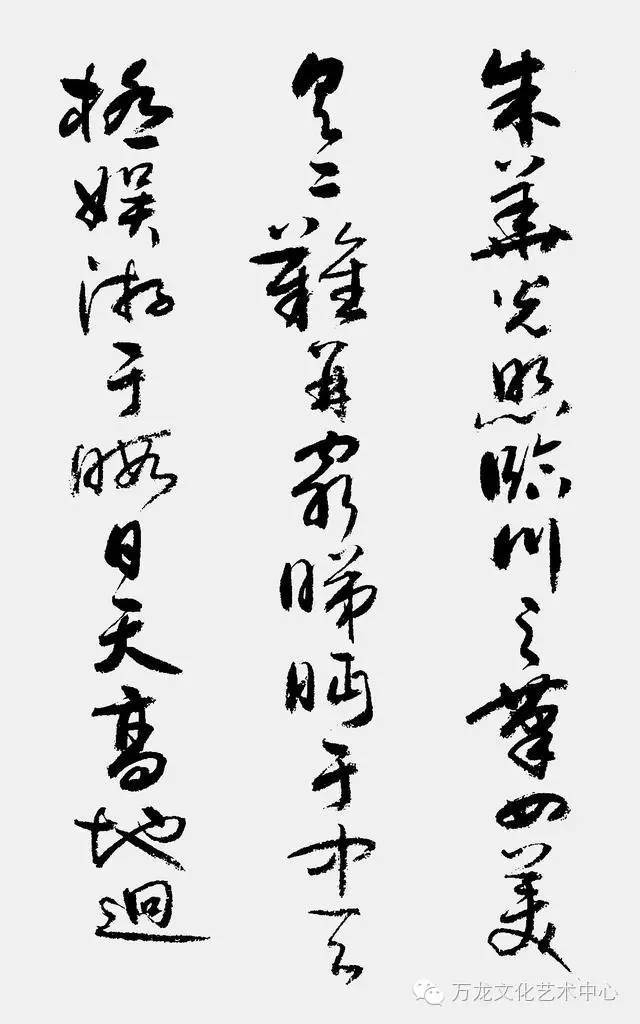 朱華光照臨川之筆四美
具二難并窮睇眄于中天
極娛游于暇日天高地迥
万龙文化艺术中心